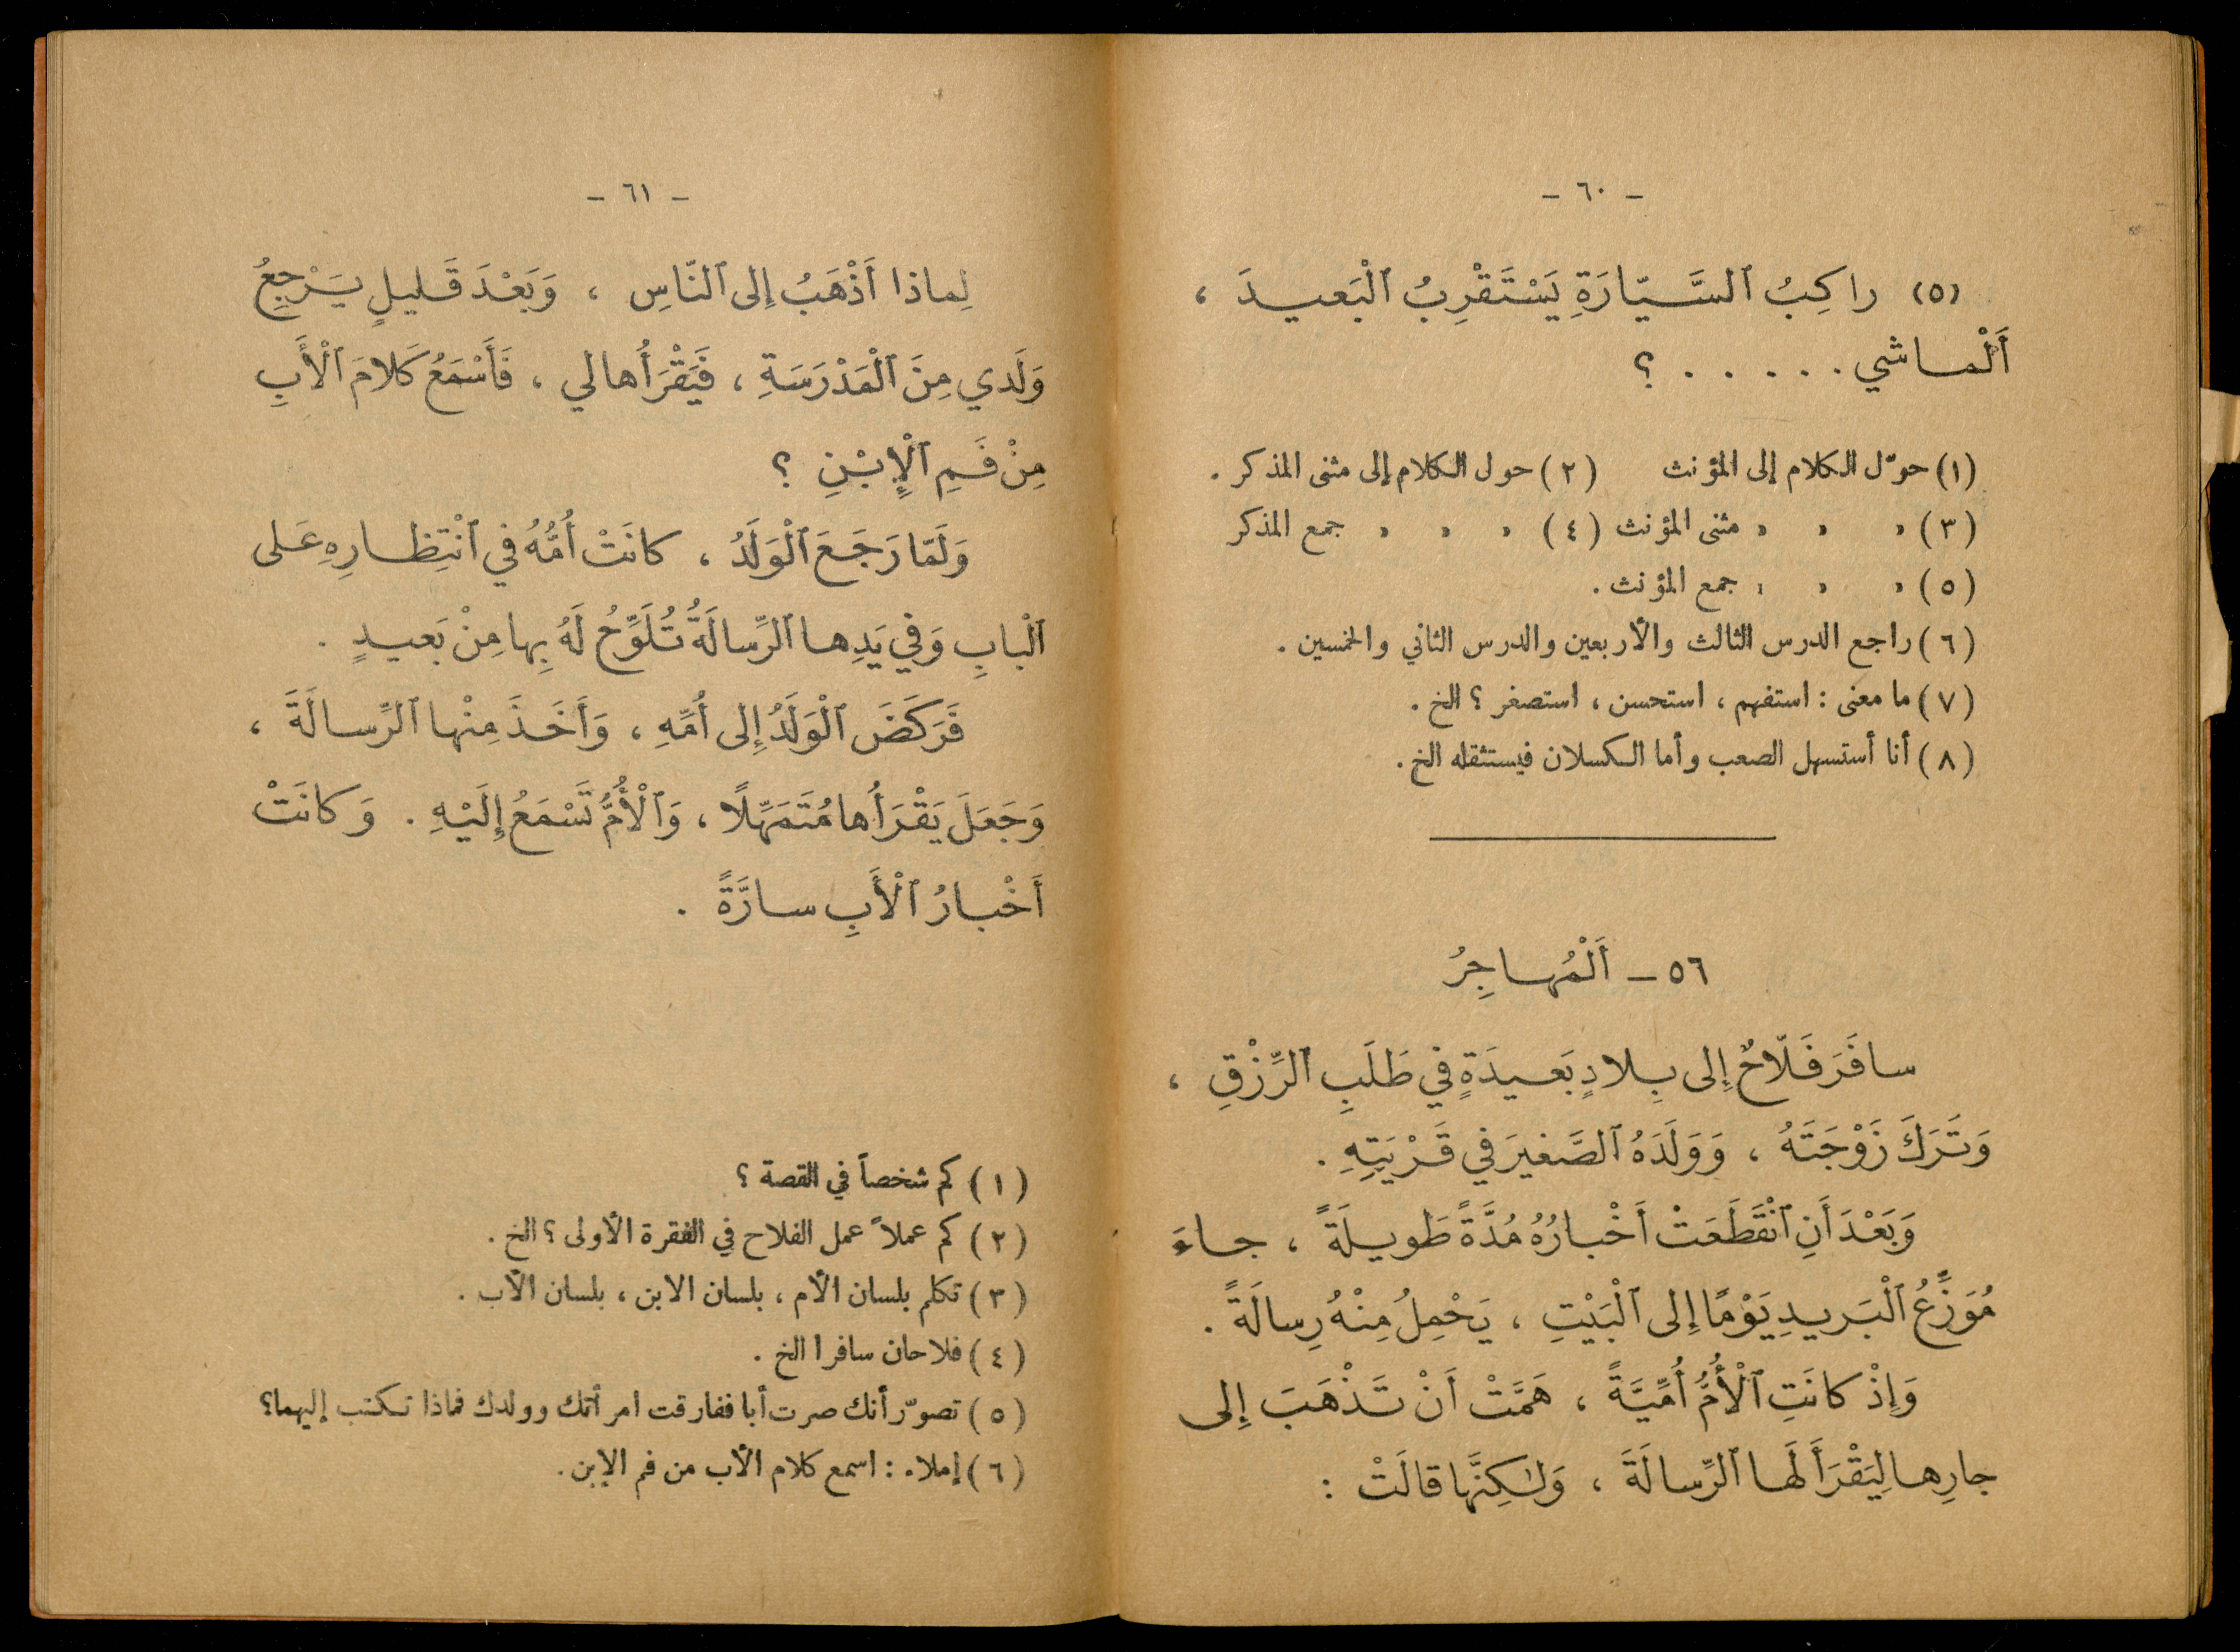 - ٦٠ -
(٥) راكِبُ ٱلسَّيّارَةِ يَسْتَقْرِبُ ٱلْبَعيدَ ،
أَلْماشي . . . . . ؟
(١) حوّل الكلام إلى المؤنث (٢) حول الكلام إلى مثنى المذكر .
(٣) » » » مثنى المؤنث (٤) » » » جمع المذكر
(٥) » » » جمع المؤنث .
(٦) راجع الدرس الثالث والأربعين والدرس الثاني والخمسين .
(٧) ما معنى : استفهم ، استحسن ، استصغر ؟ الخ .
(٨) أنا أستسهل الصعب وأما الكسلان فيستثقله الخ .
٥٦ - أَلْمُهاجِرُ
سافَرَ فَلّاحٌ إِلى بِلادٍ بَعيدَةٍ في طَلَبِ ٱلرِّزْقِ ،
وَتَرَكَ زَوْجَتَهُ ، وَوَلَدَهُ ٱلصَّغيرَ في قَرْيَتِهِ .
وَبَعْدَ أَنِ ٱنْقَطَعَتْ أَخْبارُهُ مُدَّةً طَويلَةً ، جاءَ
مُوَزِّعُ ٱلْبَريدِ يَوْمًا إِلى ٱلْبَيْتِ ، يَحْمِلُ مِنْهُ رِسالَةً .
وَإِذْ كانَتِ ٱلْأُمُّ أُمِّيَّةً ، هَمَّتْ أَنْ تَذْهَبَ إِلى
جارِها لِيَقْرَأَ لَها ٱلرِّسالَةَ ، وَلٰكِنَّها قالَتْ :
- ٦١ -
لِماذا أَذْهَبُ إِلى ٱلنّاسِ ، وَبَعْدَ قَليلٍ يَرْجِعُ
وَلَدي مِنَ ٱلْمَدْرَسَةِ ، فَيَقْرَأُها لي ، فَأَسْمَعُ كَلامَ ٱلْأَبِ
مِنْ فَمِ ٱلْإِبْنِ ؟
وَلَمّا رَجَعَ ٱلْوَلَدُ ، كانَتْ أُمُّهُ في ٱنْتِظارِهِ عَلى
ٱلْبابِ وَفي يَدِها ٱلرِّسالَةُ تُلَوِّحُ لَهُ بِها مِنْ بَعيدٍ .
فَرَكَضَ ٱلْوَلَدُ إِلى أُمِّهِ ، وَأَخَذَ مِنْها ٱلرِّسالَةَ ،
وَجَعَلَ يَقْرَأُها مُتَمَهِّلًا ، وَٱلْأُمُّ تَسْمَعُ إِلَيْهِ . وَكانَتْ
أَخْبارُ ٱلْأَبِ سارَّةً .
(١) كم شخصاً في القصة ؟
(٢) كم عملاً عمل الفلاح في الفقرة الأولى ؟ الخ .
(٣) تكلم بلسان الأم ، بلسان الابن ، بلسان الأب .
(٤) فلاحان سافرا الخ .
(٥) تصوّر أنك صرت أبا ففارقت امرأتك وولدك فماذا تكتب إليهما؟
(٦) إملاء : اسمع كلام الأب من فم الإبن .